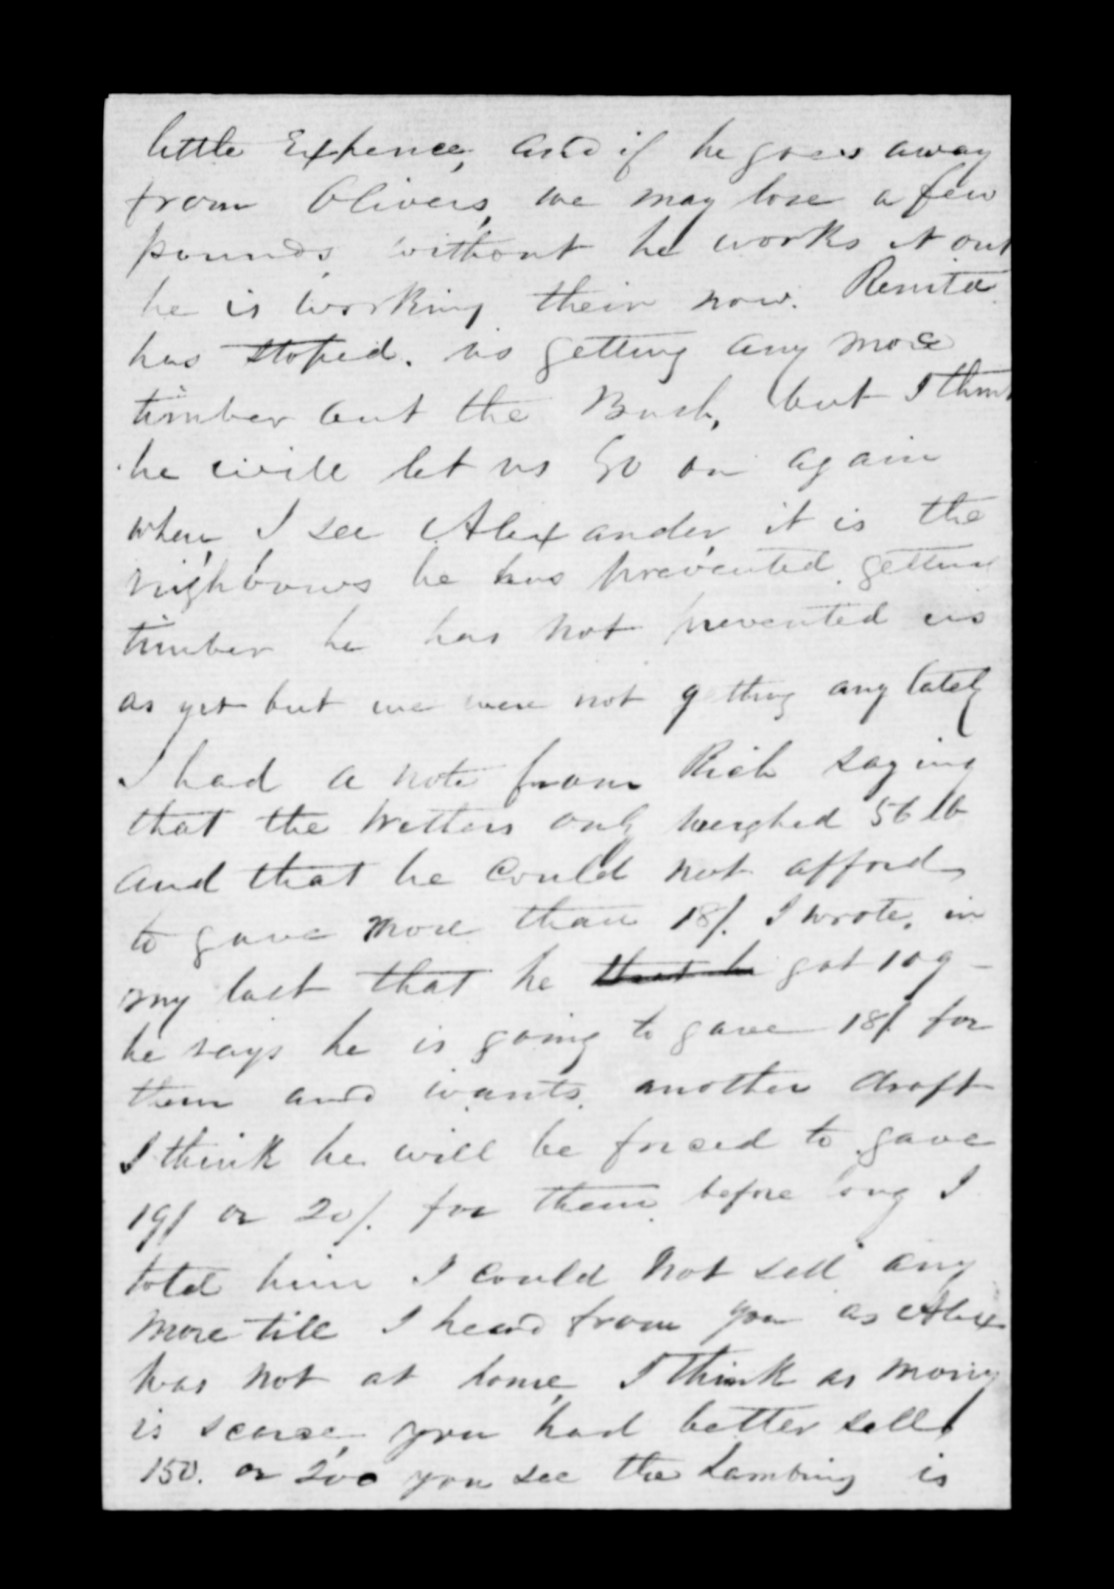 little Expence, and if he goes away
from Olivers, we may lose a few
pounds without he works it out
he is working their now. Renata
has stoped. us getting any more
timber out the Bush, but I think
he will let us Go on again
when, I see Alexander, it is the
nighbours he has prevented getting
timber he has not prevented us
as yet but we were not getting any lately
I had a note from Rich saying
that the Wethers only weighed 56 lb
and that he could not afford
to gave more than 18/. I wrote, in
my last that he that he got 109 -
he says he is going to gave 18/ for
them and wants another draft
I think he will be forced to gave
19/ or 20/. for them before long I
told him I could not sell any
more till I heard from you as Alex
was not at home, I think as money
is scarse, you had better sell
150. or 200 you see the Lambing is